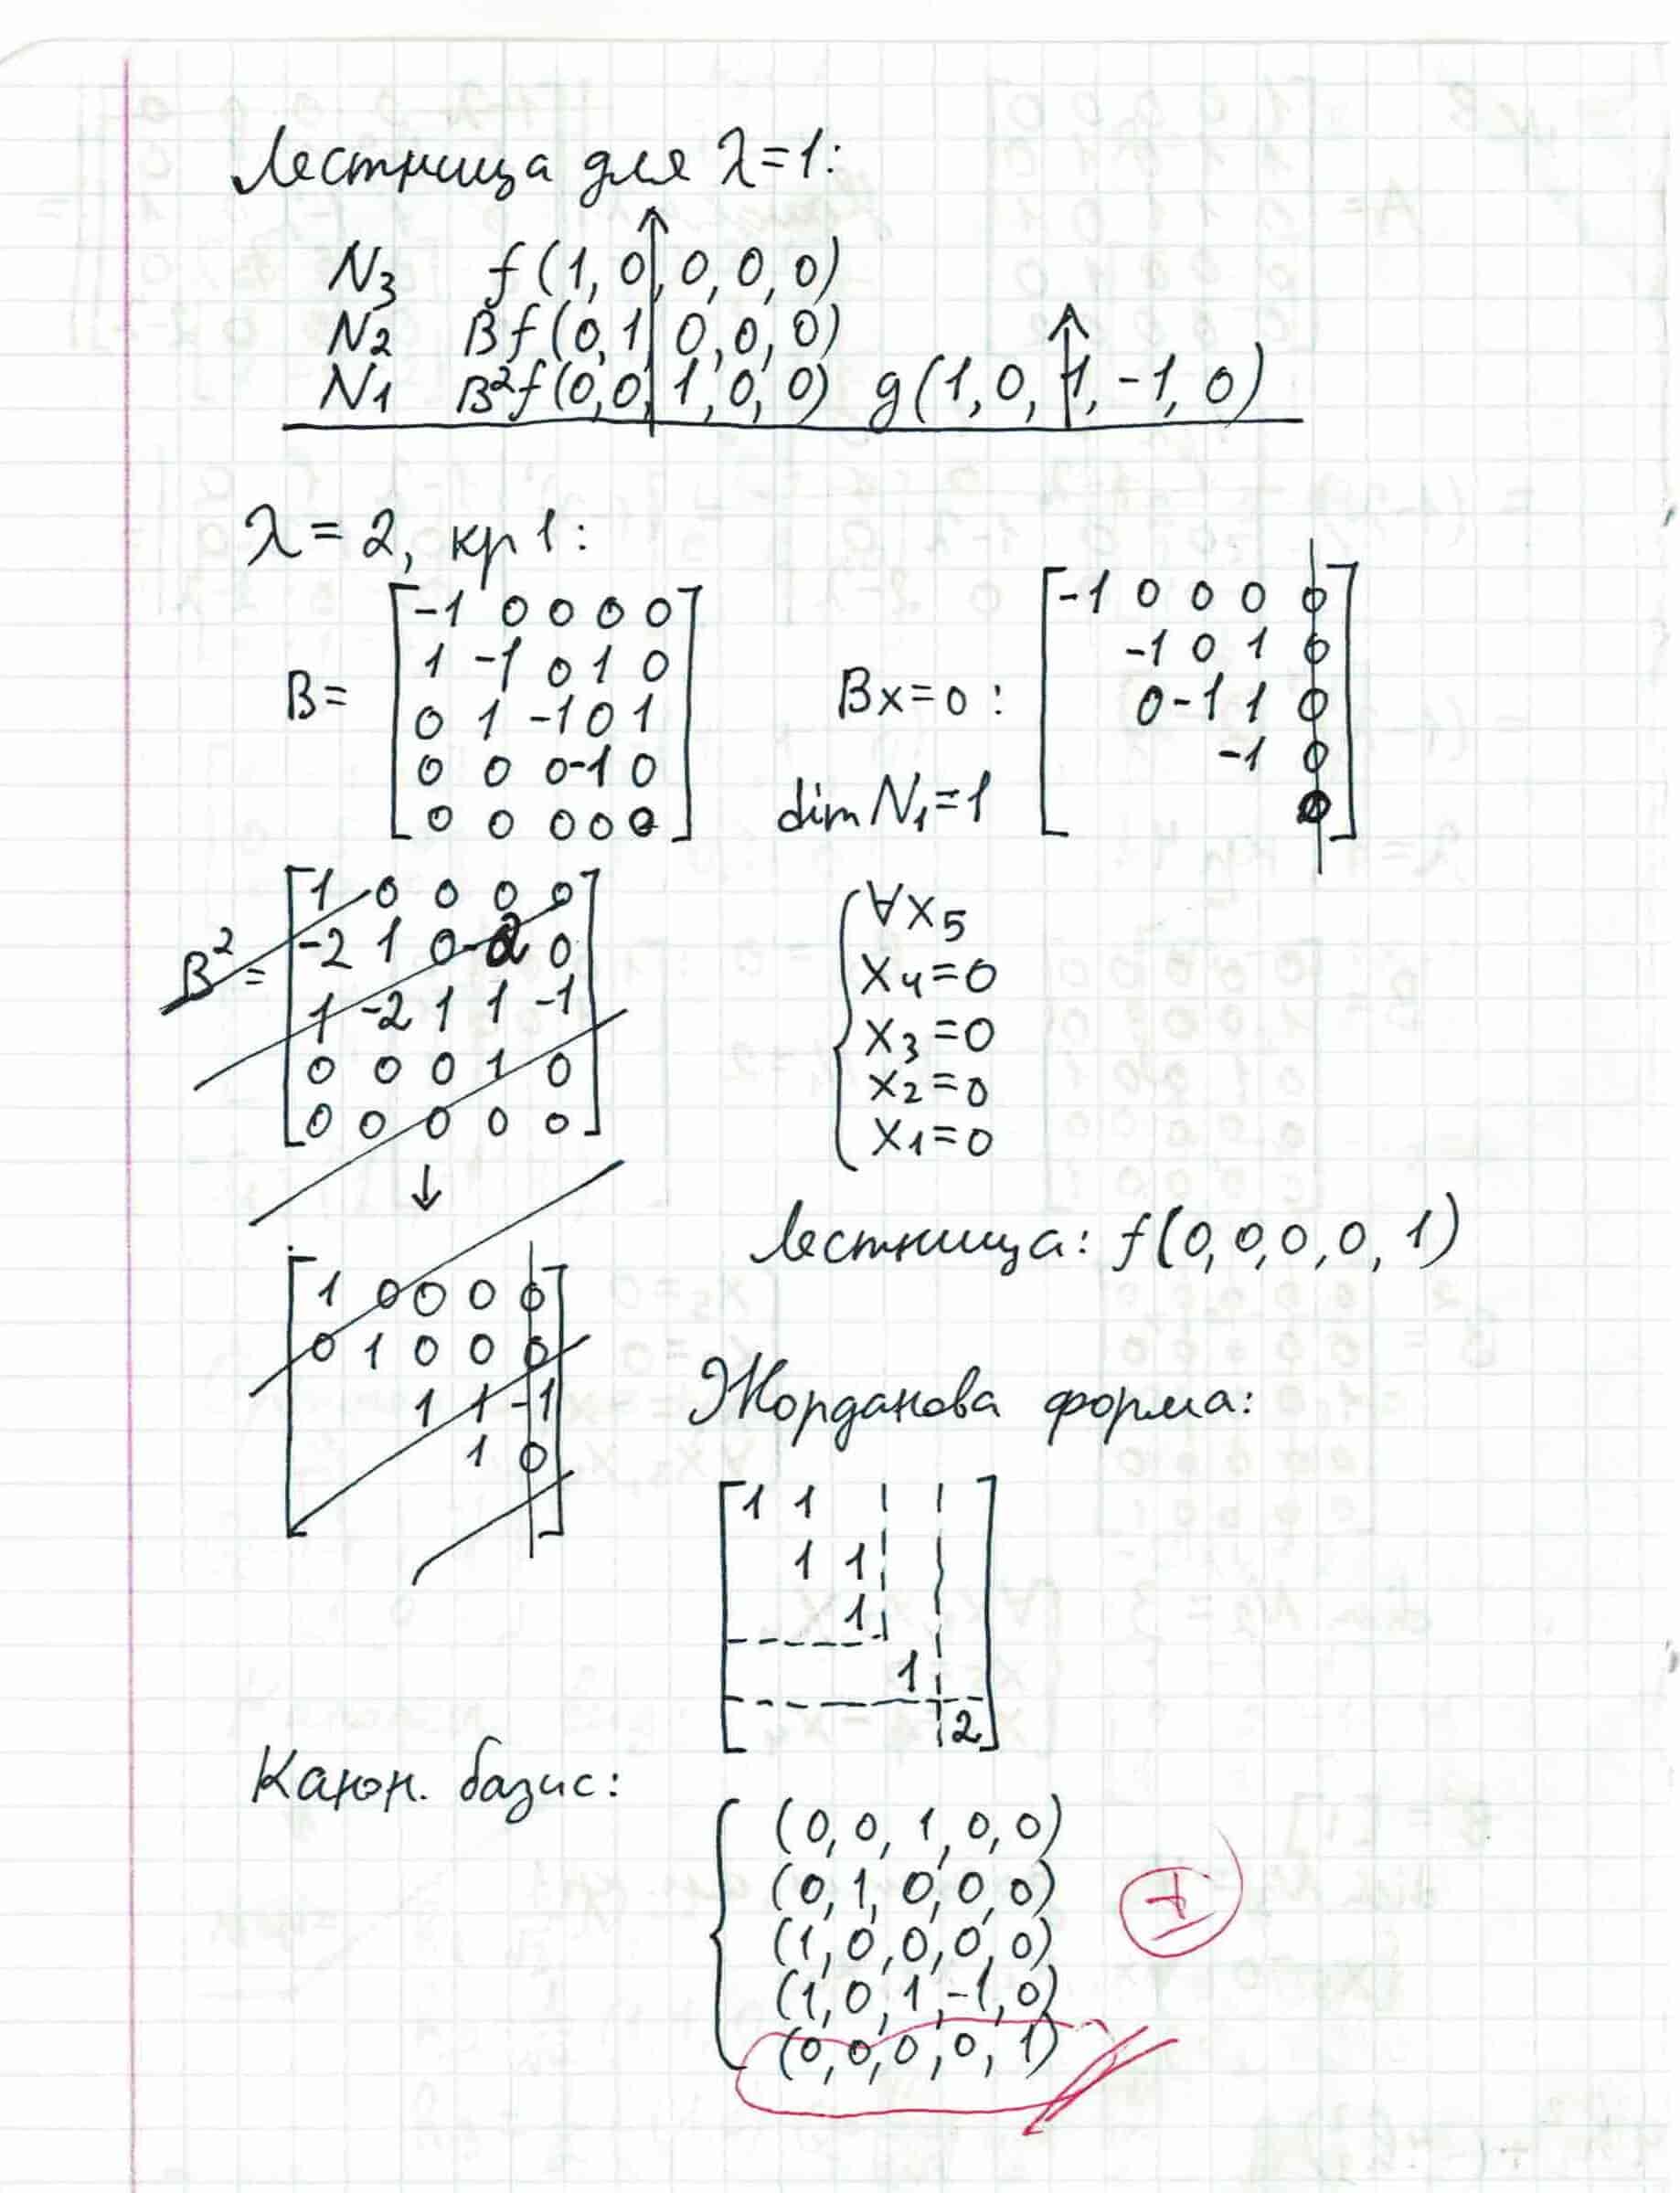 Лестница для λ=1:
N3 f(1, 0, 0, 0, 0)
N2 Bf(0, 1, 0, 0, 0)
N1 B²f(0, 0, 1, 0, 0) g(1, 0, 1, -1, 0)
λ = 2, кр 1:
B=
-1 0 0 0 0
1 -1 0 1 0
0 1 -1 0 1
0 0 0 -1 0
0 0 0 0 0
Bx=0:
-1 0 0 0 0
-1 0 1 0
0 -1 1 0
-1 0
0
dim N1=1
B² =
1 0 0 0 0
-2 1 0 -2 0
1 -2 1 1 -1
0 0 0 1 0
0 0 0 0 0
↓
1 0 0 0 0
0 1 0 0 0
1 1 -1
1 0
∀x5
x4=0
x3=0
x2=0
x1=0
Лестница: f(0, 0, 0, 0, 1)
Жорданова форма:
1 1
1 1
1
1
2
Канон. базис:
(0, 0, 1, 0, 0)
(0, 1, 0, 0, 0)
(1, 0, 0, 0, 0)
(1, 0, 1, -1, 0)
(0, 0, 0, 0, 1)
±